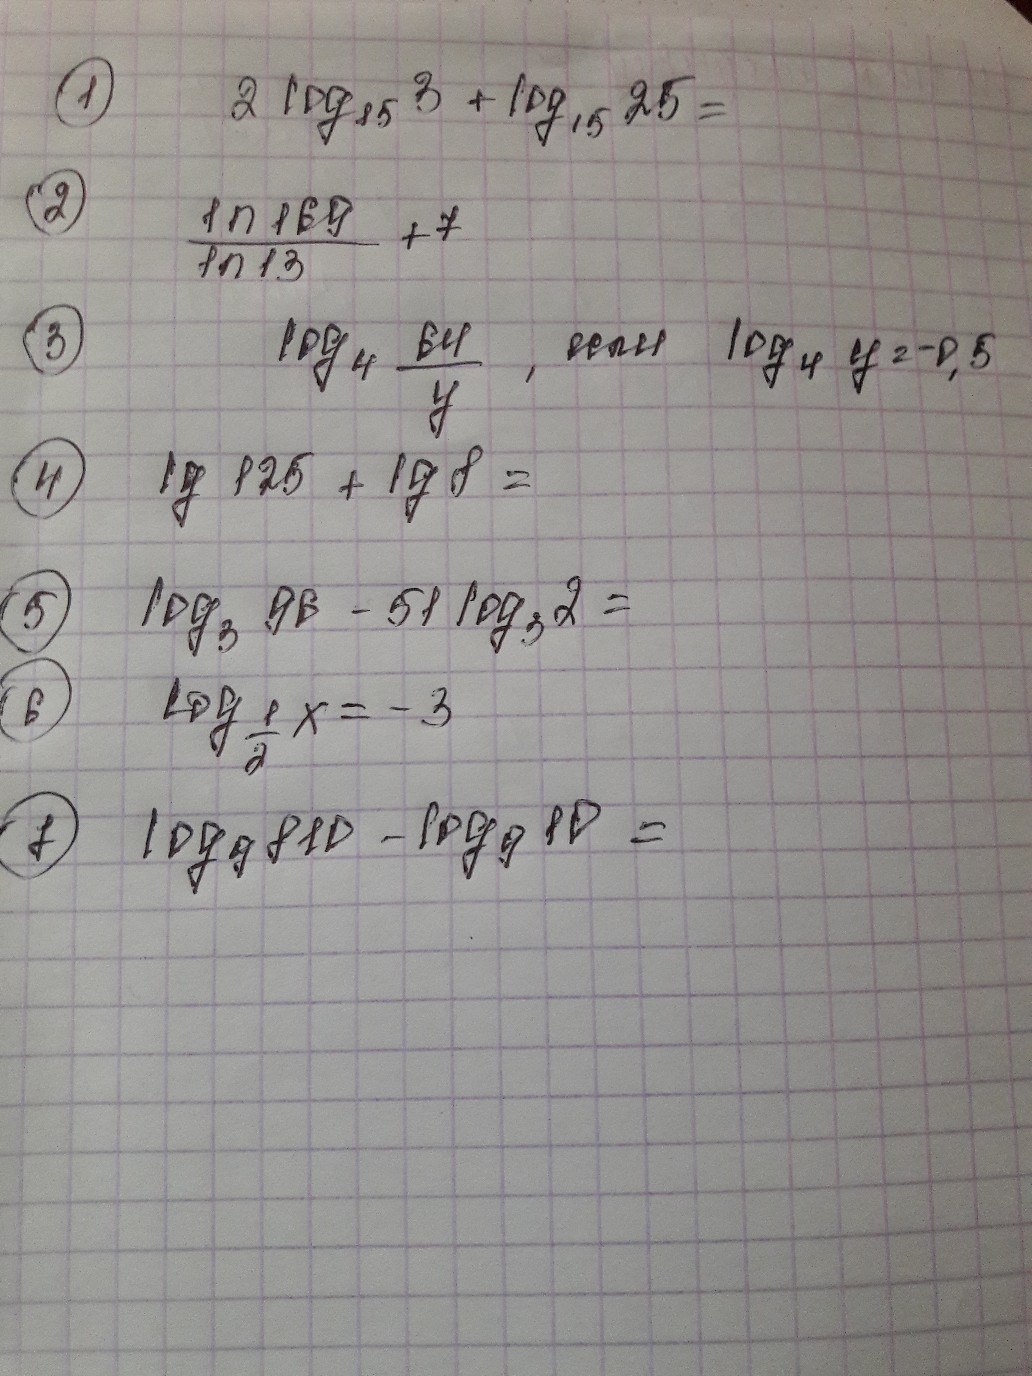 ① 2 log₁₅ 3 + log₁₅ 25 =
② ln 169 / ln 13 + 7
③ log₄ 64/y , если log₄ y = -0,5
④ lg 125 + lg 8 =
⑤ log₃ 96 - 51 log₃ 2 =
⑥ log_{1/2} x = -3
⑦ log₉ 810 - log₉ 10 =